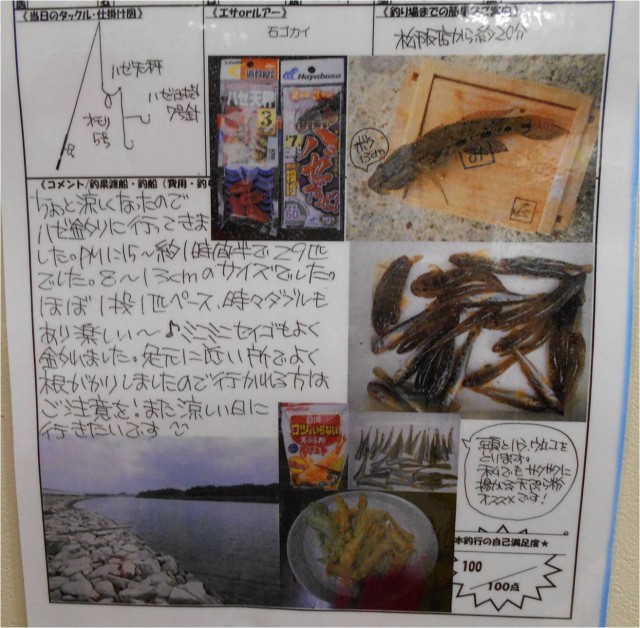 《当日のタックル・仕掛図》
《エサorルアー》
石ゴカイ
《釣り場までの
松阪店から約20分
ハゼ天秤
オモリ
5号
ハゼ
7号針
ハゼ天秤
3
Hayabusa
ハゼ
最大
13cm
《コメント/釣果渡船・釣船(費用・釣
ちょっと涼しくなったので
ハゼ釣りに行ってきま
した。PMに15～約1時間半で29匹
でした。8～13cmのサイズでした。
ほぼ1投1匹ペース、時々ダブルも
あり楽しい～♪ミニミニセイゴもよく
釣れました。足元に近い所でよく
根がかりしましたので行かれる方は
ご注意を!また涼しい日に
行きたいです
コツのいらない
天ぷら粉
頭とハラ、ウロコを
とります。
私でもサクサクに
揚がる天ぷら粉
オススメです!
本釣行の自己満足度★
100
100点